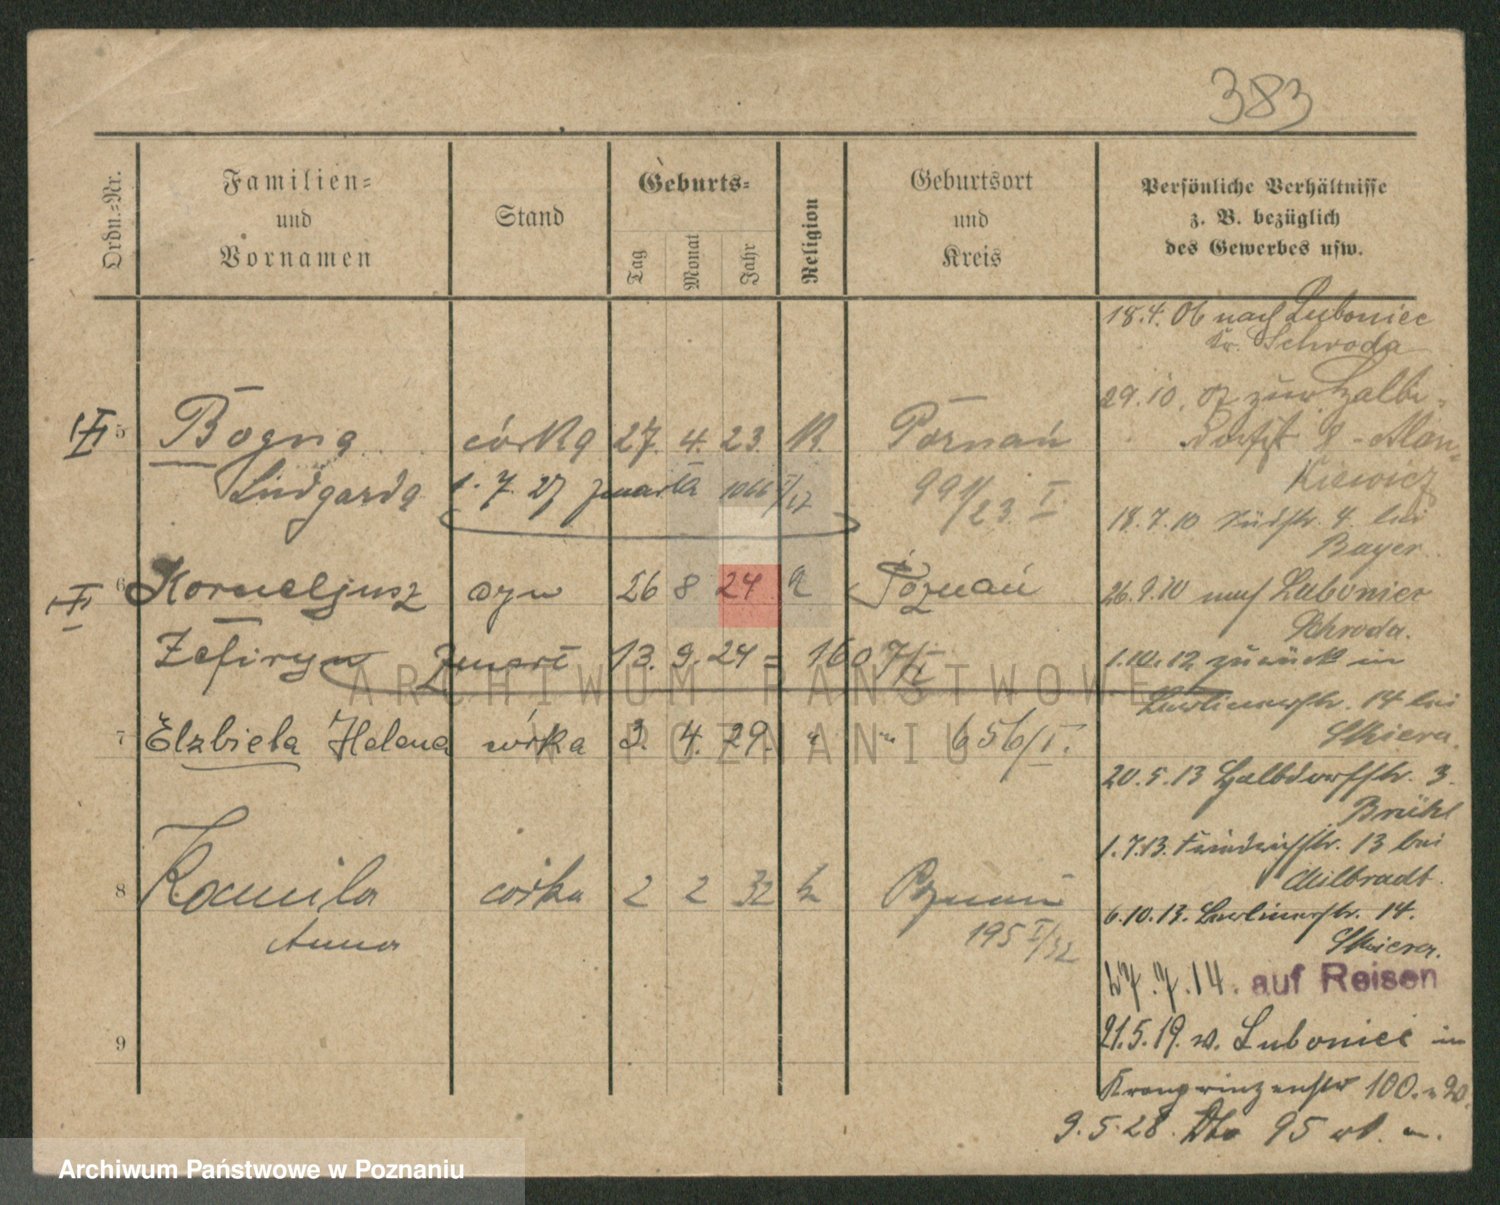 383
Ordn.=Nr.
Familien=
und
Vornamen
Stand
Geburts=
Tag
Monat
Jahr
Religion
Geburtsort
und
Kreis
Persönliche Verhältnisse
z. B. bezüglich
des Gewerbes usw.
18.4. 06 nach Luboniec
Kr. Schroda
29.10. 07
18.7.10 4 bei
Bayer
26.9.10 nach Luboniec
Schroda.
1.10.12 zurück in
Berlinerstr. 14 bei
Skiera.
20.5.13 Halbdorfstr. 3.
Brühl
1.7.13. Friedrichstr. 13 bei
Milbradt.
6.10.13. Berlinerstr. 14.
Skiera.
27.7.14. auf Reisen
21.5.19. v. Luboniec in
Kronprinzenstr 100.
9.5.28. Dto 95
5 Bogna córka 27. 4. 23. K. Poznań
Lindgarda 1.7.27 zmarła 1066 I/27 991/23. I.
6 Korneljusz syn 26 8 24 k Poznań
Zefiryn zmarł 13.9.24 = 1607/I
7 Elzbieta Helena córka 3. 4. 29. " " 656/I.
8 Kamila córka 2 2 32 k Poznań
Anna 195 I/32
9
ARCHIWUM PAŃSTWOWE
W POZNANIU
Archiwum Państwowe w Poznaniu